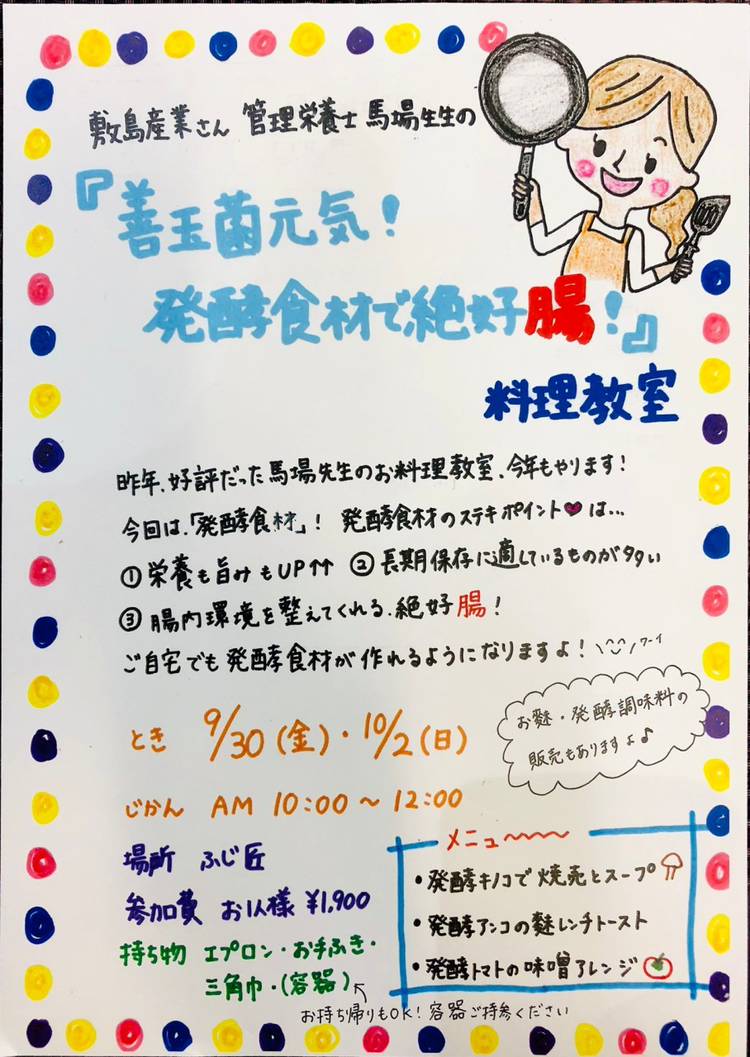 敷島産業さん 管理栄養士 馬場先生の
『善玉菌元気!
発酵食材で、絶好腸!』
料理教室
昨年、好評だった馬場先生のお料理教室、今年もやります!
今回は、「発酵食材」! 発酵食材のステキポイント♥は…
①栄養も旨みもUP↑↑ ②長期保存に適しているものが多い
③腸内環境を整えてくれる、絶好腸!
ご自宅でも発酵食材が作れるようになりますよ! \^^/ワーイ
お麩・発酵調味料の
販売もありますよ♪
とき 9/30(金)・10/2(日)
じかん AM 10:00〜12:00
場所 ふじ匠
参加費 お1人様 ¥1,900
持ち物 エプロン・お手ふき・
三角巾・(容器)
お持ち帰りもOK! 容器ご持参ください
メニュー〜〜〜
・発酵キノコで焼売とスープ
・発酵アンコの麩レンチトースト
・発酵トマトの味噌アレンジ